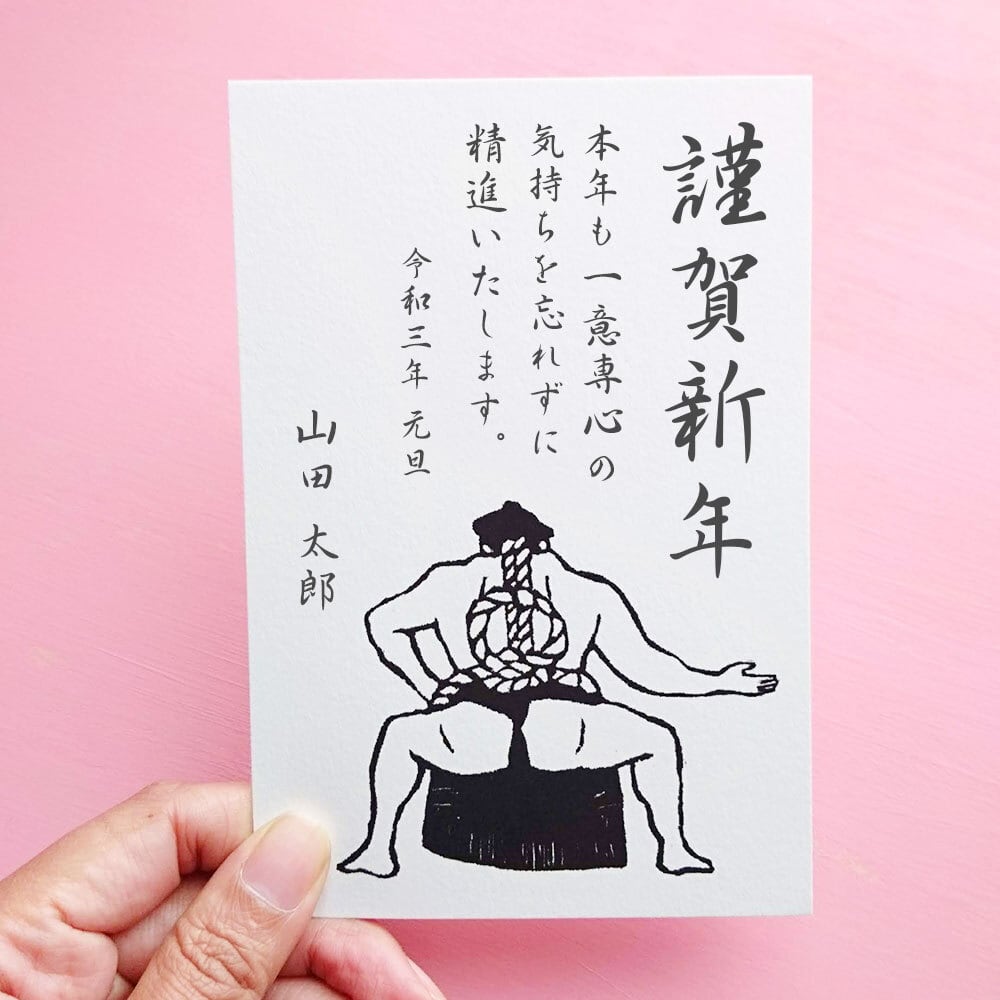 謹賀新年
本年も一意専心の
気持ちを忘れずに
精進いたします。
令和三年 元旦
山田 太郎